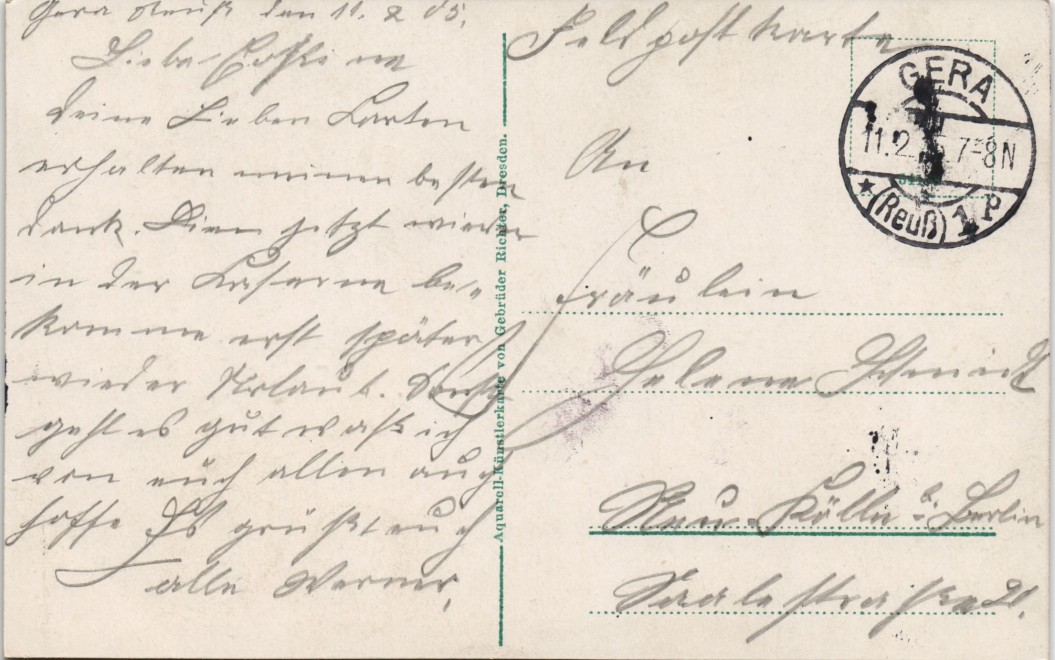 Gera Reuß den 11. 2 05.
Liebe
deine Lieben Karten
erhalten meinen besten
dank. Bien jetzt wieder
in der Kaserne be-
komme erst später
wieder Urlaub. Sonst
geht es gut waß ich
von euch allen auch
hoffe Es grüßt euch
alle Werner,
Aquarell-Künstlerkarte von Gebrüder Richter, Dresden.
Feldpostkarte
GERA
11.2. 7-8N
(Reuß) 1
An
Fräulein
Helene Schmidt
Neu-Kölln b Berlin
Saalestraße